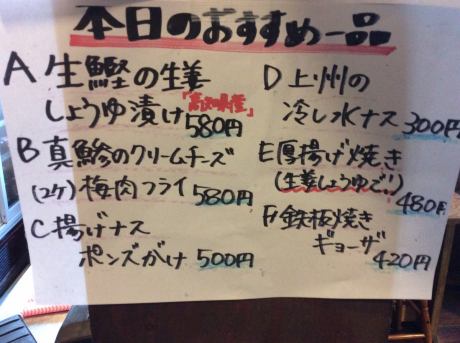 本日のおすすめ一品
A 生鰹の生姜
しょうゆ漬け「高知県産」580円
B 真鯵のクリームチーズ
(2ケ) 梅肉フライ 580円
C 揚げナス
ポンズがけ 500円
D 上州の
冷し水ナス 300円
E 厚揚げ焼き
(生姜しょうゆで!) 480円
F 鉄板焼き
ギョーザ 420円